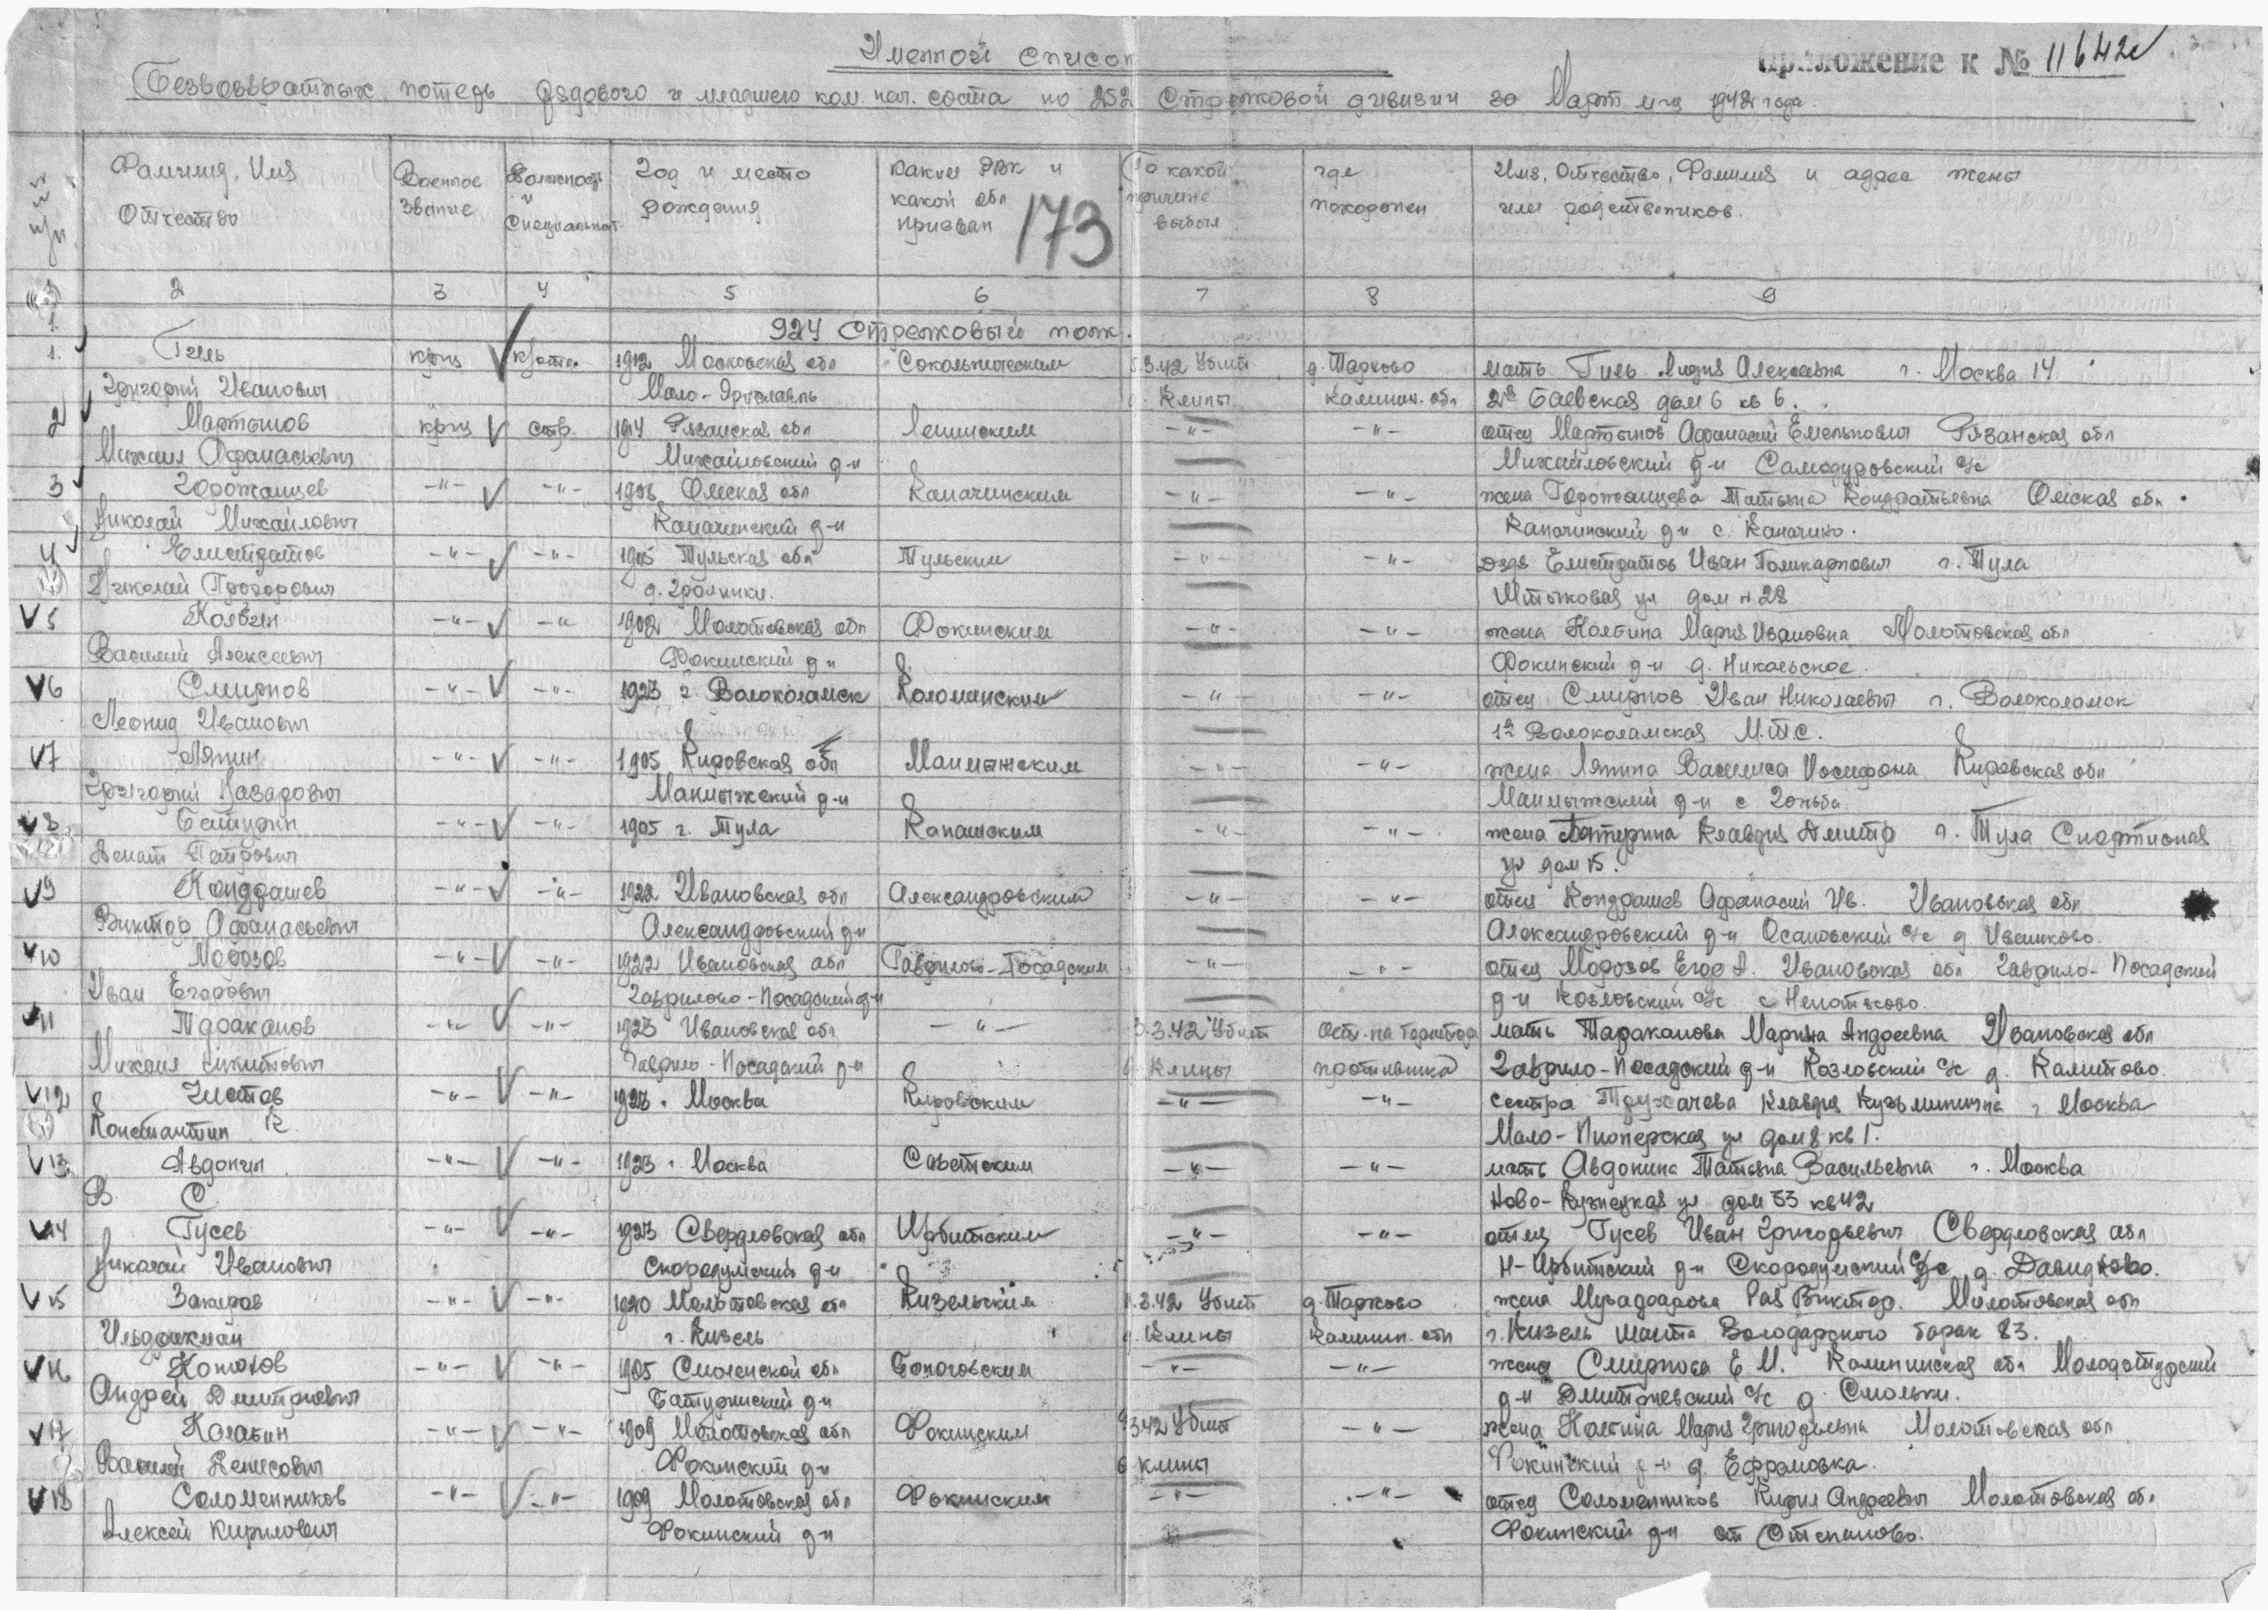 Именной список
Приложение к № 11642с
Безвозвратных потерь рядового и младшего ком. нач. соста по 252 Стрелковой дивизии за Март м-ц 1942 года.
Фамилия, Имя Отчество
Военное звание
Должность и специальност
Год и место рождения
Каким РВК и какой обл призван
173
По какой причине выбыл
где похоронен
Имя, Отчество, Фамилия и адрес жены или родственников.
2 3 4 5 6 7 8 9
924 Стрелковый полк.
1. Гиль кр-ц 1912 Московская обл Сокольническим 3.42 Убит д. Тарково мать Гиль Лидия Алексеевна г. Москва 14
Григорий Иванович Мало-Ярославль Клины Калинин. обл 2я Баевская дом 6 кв 6.
2 Мартынов кр-ц стр. 1914 Рязанская обл Ленинским -"- -"- отец Мартынов Афанасий Емельнович Рязанская обл
Михаил Афанасьевич Михайловский р-н Михайловский р-н Самодуровский с/с
3 Горожанцев -"- -"- Омская обл Каначинским -"- -"- жена Горожанцева Татьяна Кондратьевна Омская обл
Николай Михайлович Каначинский р-н Каначинский р-н с. Каначино.
4 Елистратов -"- -"- 1905 Тульская обл Тульским -"- -"- дядя Елистратов Иван Поликарпович г. Тула
Николай Прохорович Штыковая ул дом н 28
5 Колбин -"- -"- 1902 Молотовская обл Фокинским -"- -"- жена Колбина Мария Ивановна Молотовская обл
Василий Алексеевич Фокинский р-н Фокинский р-н д. Никольское.
6 Смирнов -"- -"- 1923 г. Волоколамск Коломинским -"- -"- отец Смирнов Иван Николаевич г. Волоколамск
Леонид Иванович 1я Волоколамская М.Т.С.
7 Ляпин -"- -"- 1905 Кировская обл Малмыжским -"- -"- жена Ляпина Василиса Иосифона Кировская обл
Григорий Назарович Малмыжский р-н Малмыжский р-н с Гоньба
8 Батурин -"- -"- 1905 г. Тула -"- -"- жена Батурина Клавдия Дмитр г. Тула
Петрович ул дом 15.
9 Кондрашев -"- -"- 1922 Ивановская обл Александровским -"- -"- отец Кондрашев Афанасий Ив. Ивановская обл
Виктор Афанасьевич Александровский р-н Александровский р-н Осановский с/с д Ивашково.
10 Морозов -"- -"- 1922 Ивановская обл Гаврилово-Посадским -"- -"- отец Морозов Егор А. Ивановская обл Гаврило-Посадский
Иван Егорович Гаврилово-Посадский р-н р-н Козловский с/с с Непотягово.
11 Тараканов -"- -"- 1923 Ивановская обл -"- 3.3.42 Убит ост. на территор мать Тараканова Марина Андреевна Ивановская обл
Михаил Никитович Гаврило-Посадский р-н Клины противника Гаврило-Посадский р-н Козловский с/с д. Калитово.
12 Чистов -"- -"- 1923 Москва Кировским -"- -"- сестра Трухачева Клавдия Кузьминична г Москва
Константин К Мало-Пионерская ул дом 8 кв 1.
13 Авдонин -"- -"- 1923 Москва Советским -"- -"- мать Авдонина Татьяна Васильевна г. Москва
В С Ново-Кузнецкая ул дом 33 кв 42
14 Гусев -"- -"- 1923 Свердловская обл Ирбитским -"- -"- отец Гусев Иван Григорьевич Свердловская обл
Николай Иванович Скородумский р-н Н-Ирбитский р-н Скородумский с/с д. Давидково.
15 Закиров -"- -"- 1920 Молотовская обл Кизельским 3.42 Убит д. Тарково жена Рая Виктор. Молотовская обл
г. Кизель д. Клины Калинин. обл г. Кизель шахта Володарского барак 83.
16 -"- -"- 1905 Смоленской обл Бологовским -"- -"- жена Смирнова Е М. Калининская обл Молодотудский
Андрей Дмитриевич Батуринский р-н р-н Дмитриевский с/с д. Смольки.
17 Колабин -"- -"- 1909 Молотовская обл Фокинским 9.3.42 Убит -"- жена Колбина Мария Григорьевна Молотовская обл
Василий Денисович Фокинский р-н Клины Фокинский р-н д. Ефремовка.
18 Соломенников -"- -"- 1909 Молотовская обл Фокинским -"- -"- отец Соломенников Кирил Андреевич Молотовская обл
Алексей Кирилович Фокинский р-н Фокинский р-н ст